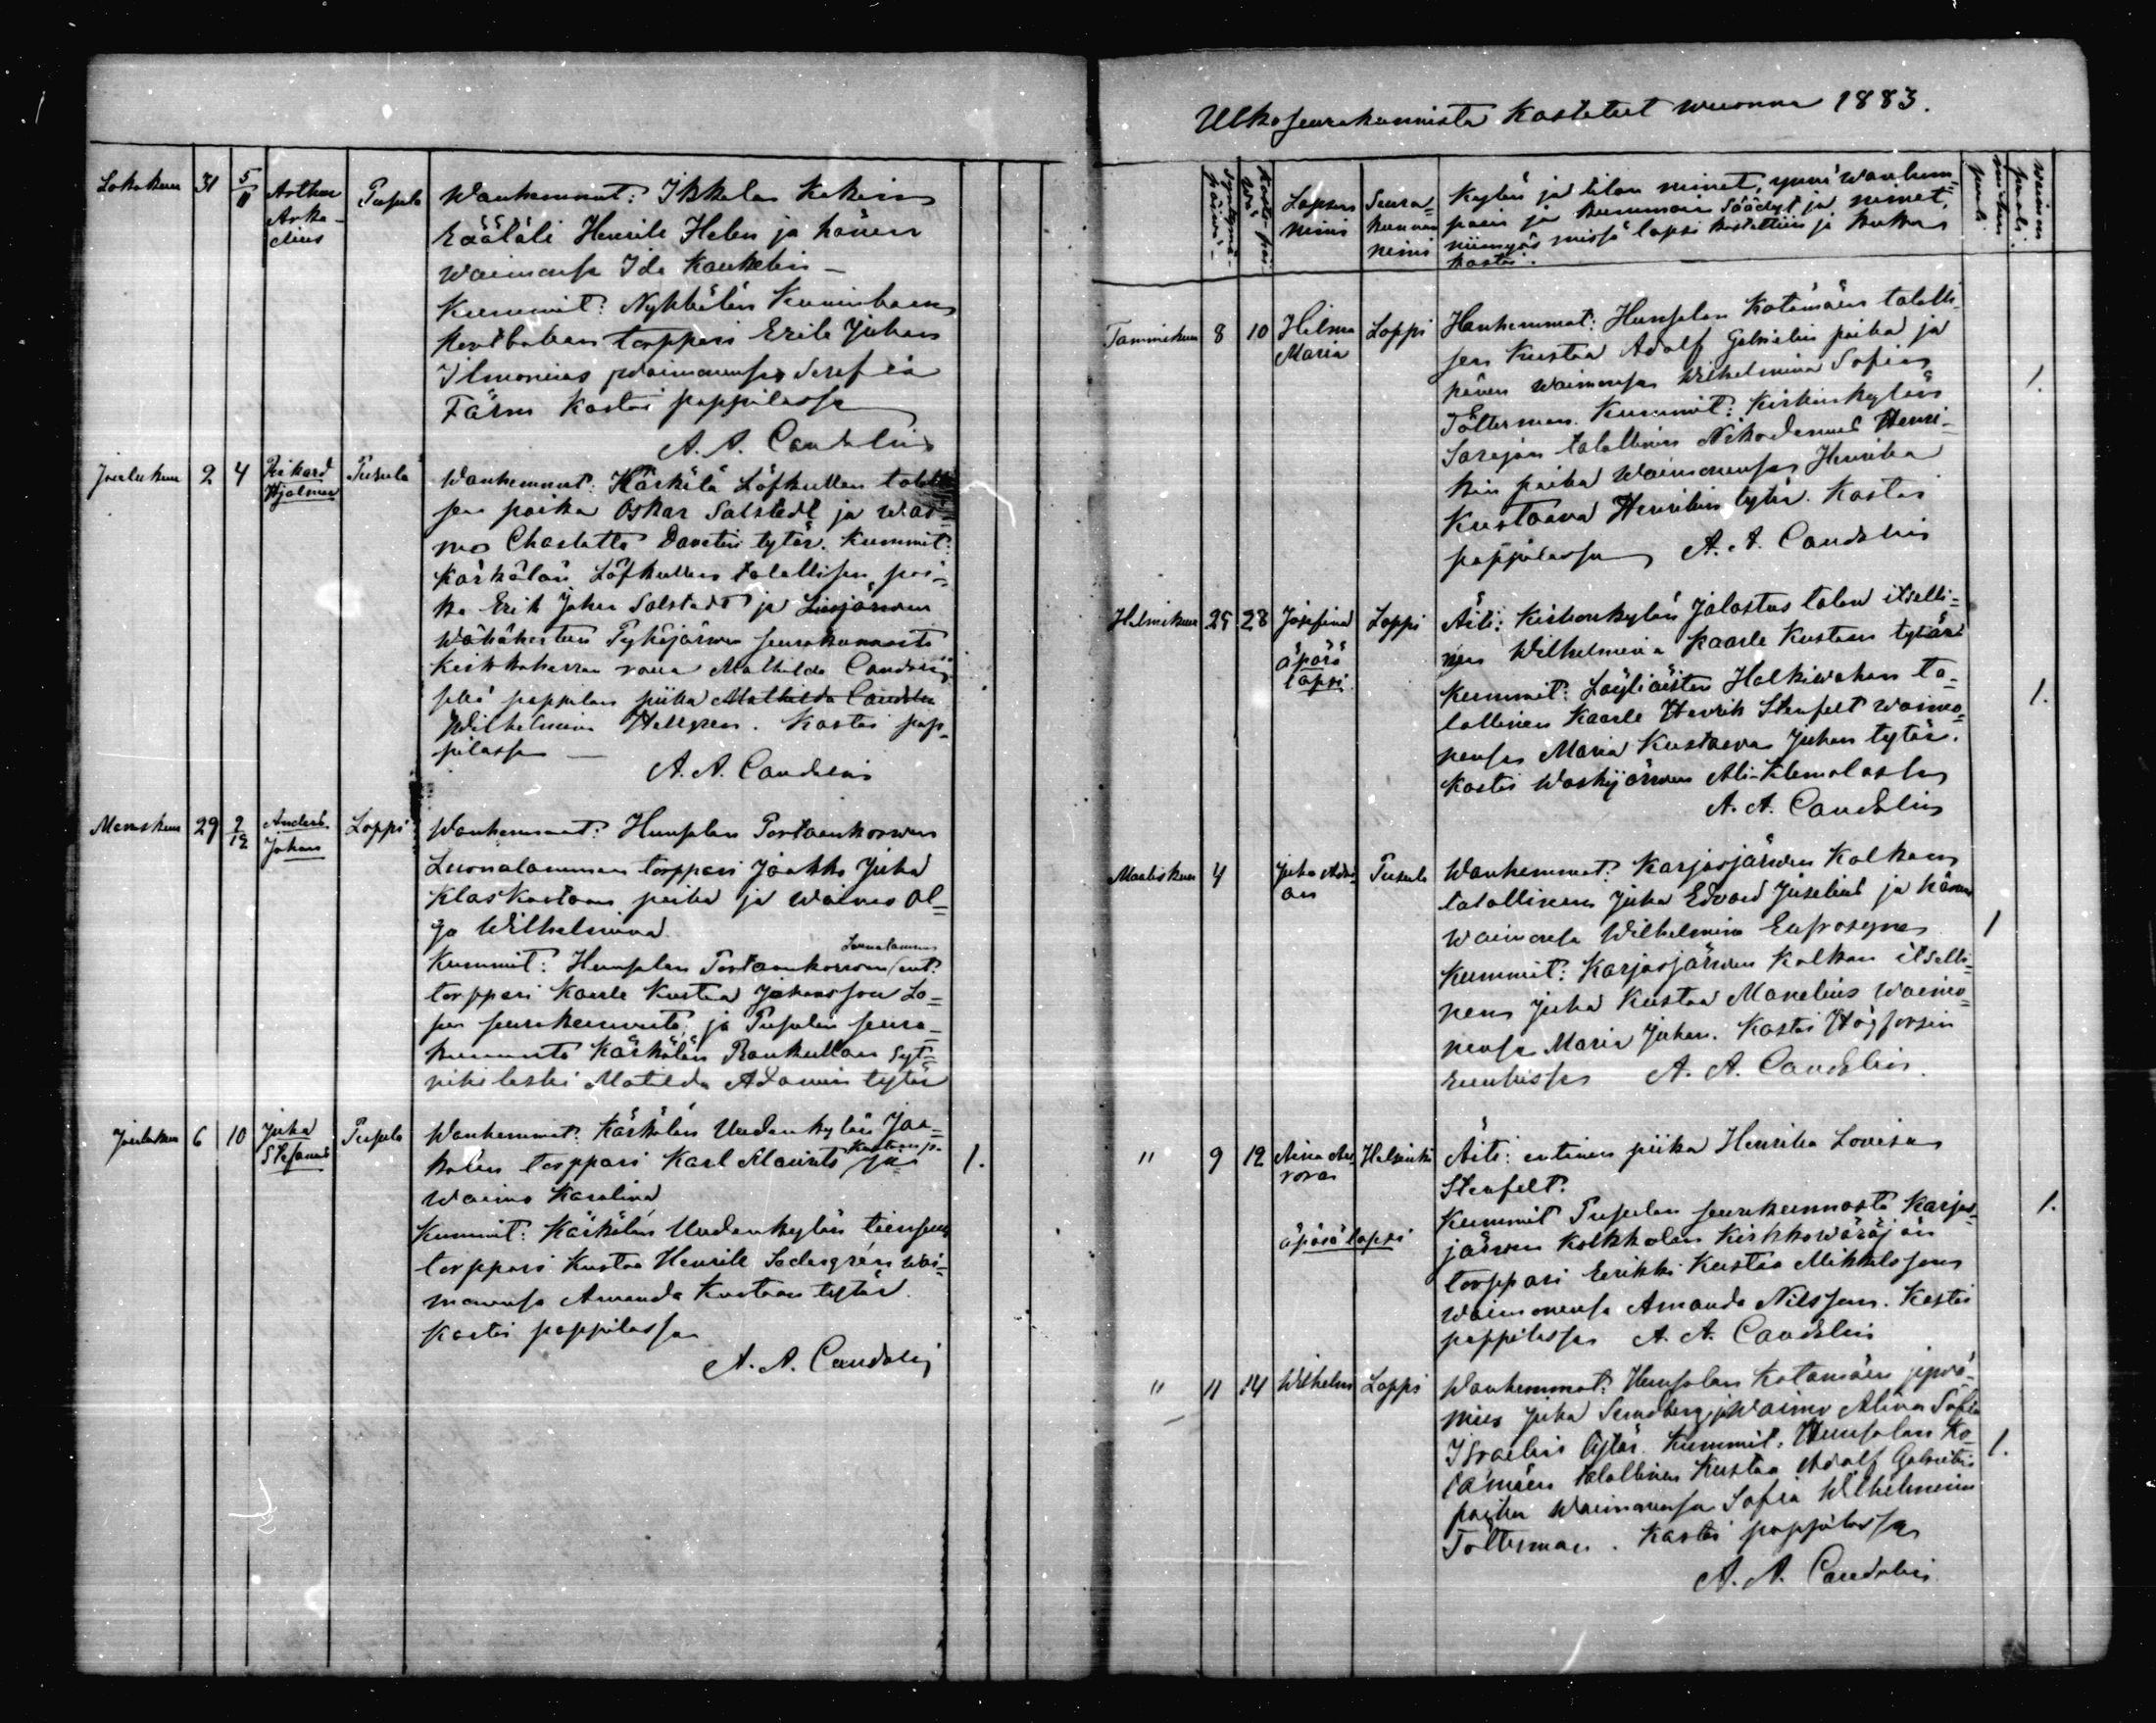 Lokakuu 31 5/11 Arthur Arka-dius Pusula
Wanhemmat: Ikkalan Kakin
Räätäli Henrik Helen ja hänen
waimonsa Ida Kankelin —
Kummit: Nykkälän
torppari Erik Juhan
Ilmonius waimonensa Serafia
Färm Kastoi pappilassa
A. A. Candelin
Joulukuu 2 4 Rikard Hjalmar Pusula
Wanhemmat: Kärkölä Löfkullan talolli
sen poika Oskar Salstedt ja wai-
mo Charlotta Davitin tytär. Kummit:
Kärkölän Löfkullan talollisen poi-
ka Erik Johan Salstedt ja Liesjärwen
Pyhäjärwen seurakunnasta
Kirkkoherran rouva Mathilda Candelin
pappilan piika Mathilda Candelin
Wilhelmina Hellgren. Kastoi pap-
pilassa —
A. A. Candelin
Marraskuu 29 2/12 Anders Johan Loppi
Wanhemmat: Hunsalan Portaankorwen
Luonalammen torppari Jaakko Juha
Klas Kustaan poika ja waimo Ol-
ga Wilhelmina
Luonalammen
Kummit: Hunsalan Portaankorwen ent.
torppari Kaarle Kustaa Johansson Lo-
pen seurakunnasta, ja Pusulan seura-
kunnasta Kärkölän Rankullan Syt-
leski Matilda Adamin tytär
Joulukuu 6 10 Juha Stefanus Pusula
Wanhemmat: Kärkölän Uudenkylän Jaa-
kolan torppari Karl Maurits Kustaan p. ja 1.
Waimo Karolina
Kummit: Kärkölän Uudenkylän
torppari Kustaa Henrik Södergrén wai-
monensa Amanda Kustaan tytär.
Kastoi pappilassa
A. A. Candelin
Ulkoseurakunnista Kastetut wuonna 1883.
Syntymä-päivä. Kaste-päi-wä Lapsen nimi Seura-kunnan nimi
Kylän ja tilan nimet, ynnä wanhem-
pain ja kummain säädyt ja nimet,
niinmyös missä lapsi kastettiin ja kuka
kastoi.
miehen puoli. waimon puoli.
Tammikuu 8 10 Hilma Maria Loppi
Wanhemmat: Hunsalan Kotamäen talolli-
sen Kustaa Adolf Gabrielin poika ja
hänen waimonsa Wilhelmina Sofia 1.
Tölterman. Kummit: Kirkonkylän
Sarajan talollinen Nikodemus Henri-
kin poika Waimonensa Henrika
Kustaava Henrikin tytär. Kastoi
pappilassa A. A. Candelin
Helmikuu 25 28 Josefina äpärä lapsi Loppi
Äiti: Kirkonkylän Jalastus talon itselli-
nen Wilhelmina Kaarle Kustaan tytär
Kummit: Läyliäisten Halkiwahan ta- 1.
lollinen Kaarle Henrik Stenfelt waimo-
nensa Maria Kustaava Juhan tytär.
Kastoi Waskijärwen Ali-Klemolassa
A. A. Candelin
Maaliskuu 4 Juho Adri-an Pusula
Wanhemmat: Karjasjärwen Kalkan
talollinen Juha Edvard Juselius ja hänen
waimonsa Wilhelmina Eufrosyne 1
Kummit: Karjasjärwen Kalkan itselli-
nen Juha Kustaa Manelius waimo-
nensa Maria Juhan. Kastoi Högforsin
A. A. Candelin.
" 9 12 Aina Au-rora äpärä lapsi Helsinki
Äiti: entinen piika Henrika Lovisa
Stenfelt.
Kummit Pusulan seurakunnasta Karjas- 1.
järwen Kolkkolan Kirkkowäräjän
torppari Eerikki Kustaa Mikkelsson
waimonensa Amanda Nilsson. Kastoi
pappilassa A. A. Candelin
" 11 14 Wilhelm Loppi
Wanhemmat: Hunsalan Kotamäen jywä-
mies Juha Sundberg ja Waimo Alina Sofia
Israelin tytär. Kummit: Hunsalan Ko- 1.
tamäen talollinen Kustaa Adolf Gabrielin
poika Waimonensa Sofia Wilhelmina
Tölterman. Kastoi pappilassa
A. A. Candelin